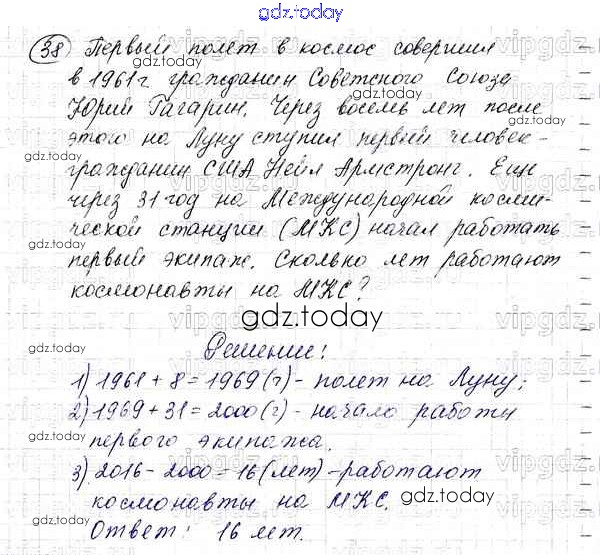 gdz.today
38 Первый полет в космос совершил
в 1961г гражданин Советского Союза
Юрий Гагарин. Через восемь лет после
этого на Луну ступил первый человек-
гражданин США Нейл Армстронг. Еще
через 31 год на Международной косми-
ческой станции (МКС) начал работать
первый экипаж. Сколько лет работают
космонавты на МКС?
gdz.today
Решение:
1) 1961 + 8 = 1969 (г) - полет на Луну;
2) 1969 + 31 = 2000 (г) - начало работы
первого экипажа.
3) 2016 - 2000 = 16 (лет) - работают
космонавты на МКС.
Ответ: 16 лет.
gdz.today